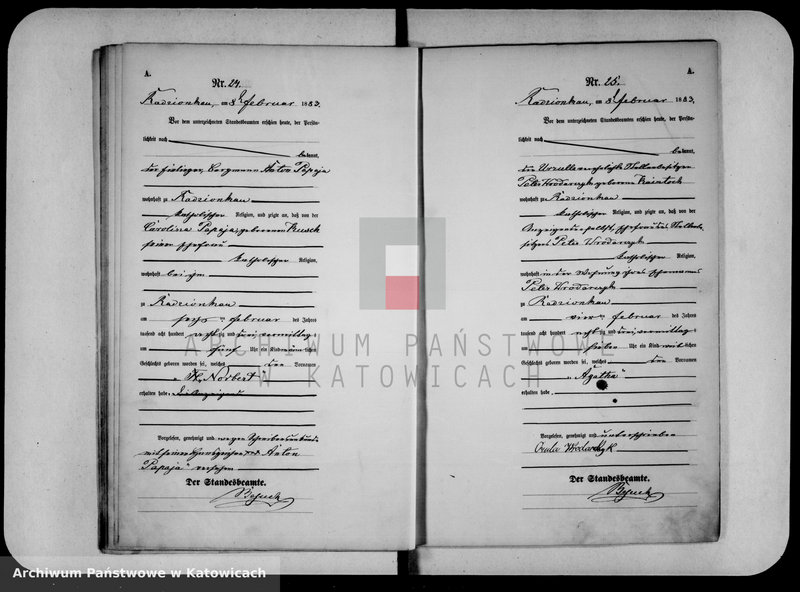 A.
Nr. 24.
Radzionkau, am 8t Februar 1883.
Vor dem unterzeichneten Standesbeamten erschien heute, der Persön-
lichkeit nach
bekannt,
der Bergmann Anton Papaja
wohnhaft zu Radzionkau
katholischer Religion, und zeigte an, daß von der
Carolina Papaja geborenen
seiner Ehefrau
katholischer Religion,
wohnhaft bei ihm
zu Radzionkau
am sechs ten Februar des Jahres
tausend acht hundert achtzig und drei Vormittag
um fünf Uhr ein Kind männlichen
Geschlechts geboren worden sei, welches den Vornamen
Norbert
erhalten habe.
Vorgelesen, genehmigt und wegen Schreibensunkunde
mit seinem Handzeichen Anton
Papaja versehen
Der Standesbeamte.
A.
Nr. 25.
Radzionkau, am 8t Februar 1883.
Vor dem unterzeichneten Standesbeamten erschien heute, der Persön-
lichkeit nach
bekannt,
die Stellenbesitzer
Peter Wrodarczyk geborene
wohnhaft zu Radzionkau
katholischer Religion, und zeigte an, daß von der
Anzeigende selbst, Ehefrau des Stellenbe-
sitzers Peter Wrodarczyk
katholischer Religion,
wohnhaft in der Wohnung ihres Ehemannes
Peter Wrodarczyk
zu Radzionkau
am vier ten Februar des Jahres
tausend acht hundert achtzig und drei Vormittag
um sieben Uhr ein Kind weiblichen
Geschlechts geboren worden sei, welches den Vornamen
Agatha
erhalten habe.
Vorgelesen, genehmigt und unterschrieben
Der Standesbeamte.
ARCHIWUM PAŃSTWOWE
W KATOWICACH
Archiwum Państwowe w Katowicach